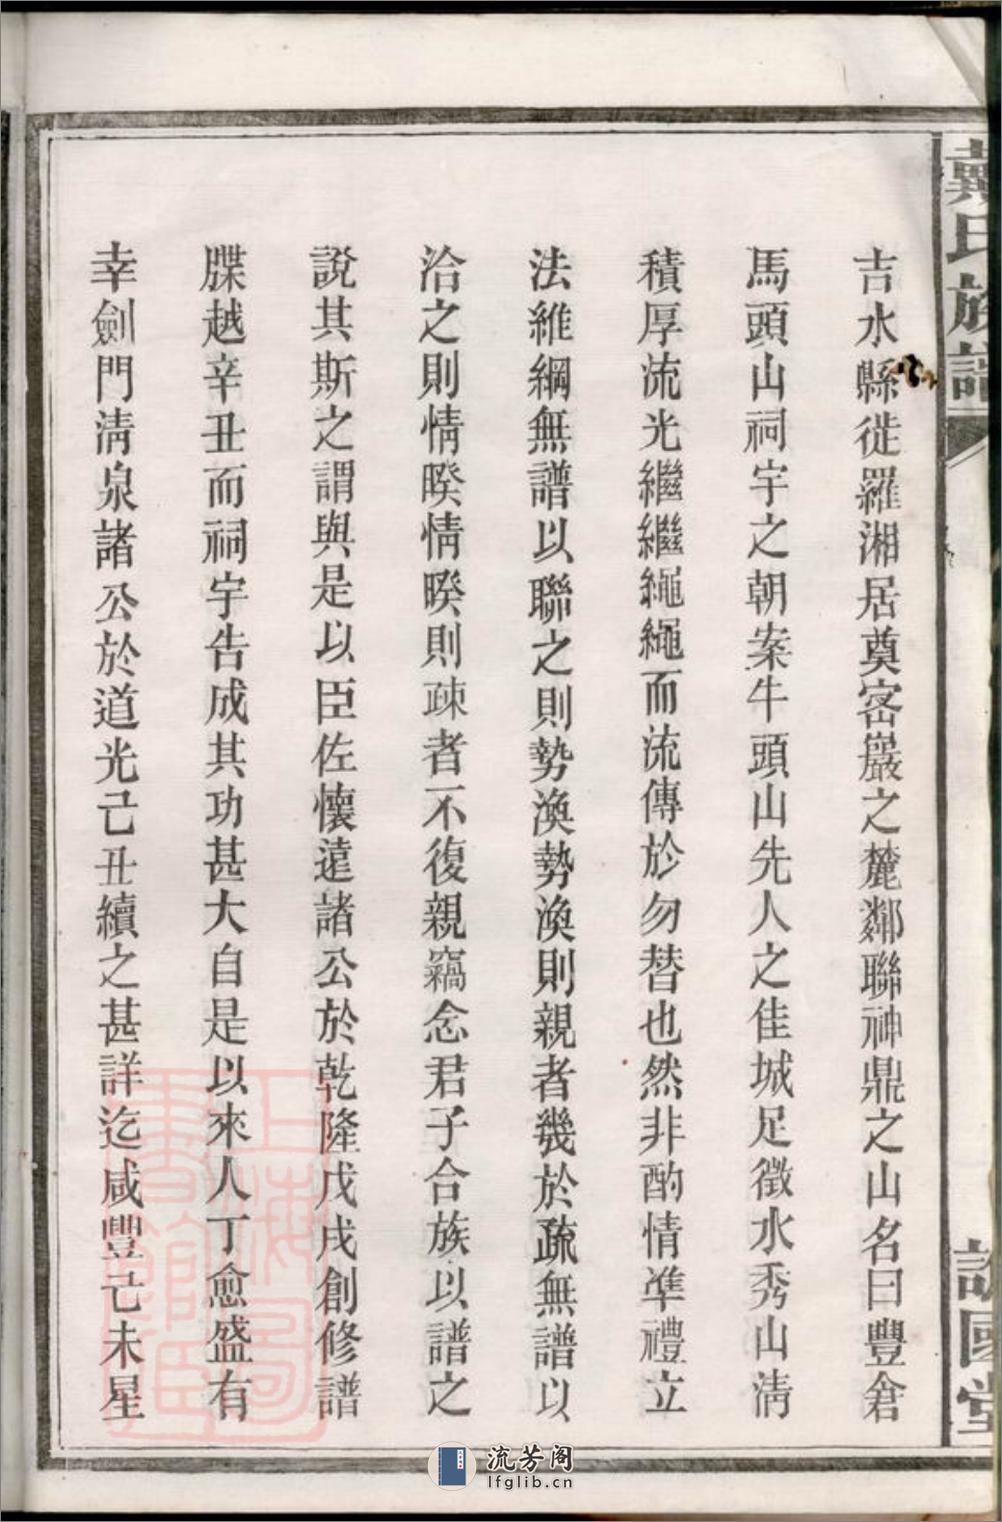 戴氏族譜
國堂
吉水縣徙羅湘居奠密巖之麓鄰聯神鼎之山名曰豐倉
馬頭山祠宇之朝案牛頭山先人之佳城足徵水秀山淸
積厚流光繼繼繩繩而流傳於勿替也然非酌情準禮立
法維綱無譜以聯之則勢渙勢渙則親者幾於疏無譜以
洽之則情睽情睽則疎者不復親竊念君子合族以譜之
說其斯之謂與是以臣佐懷遠諸公於乾隆戊戌創修譜
牒越辛丑而祠宇告成其功甚大自是以來人丁愈盛有
幸劍門淸泉諸公於道光己丑續之甚詳迄咸豐己未星
上海圖書館藏
流芳阁
lfglib.cn